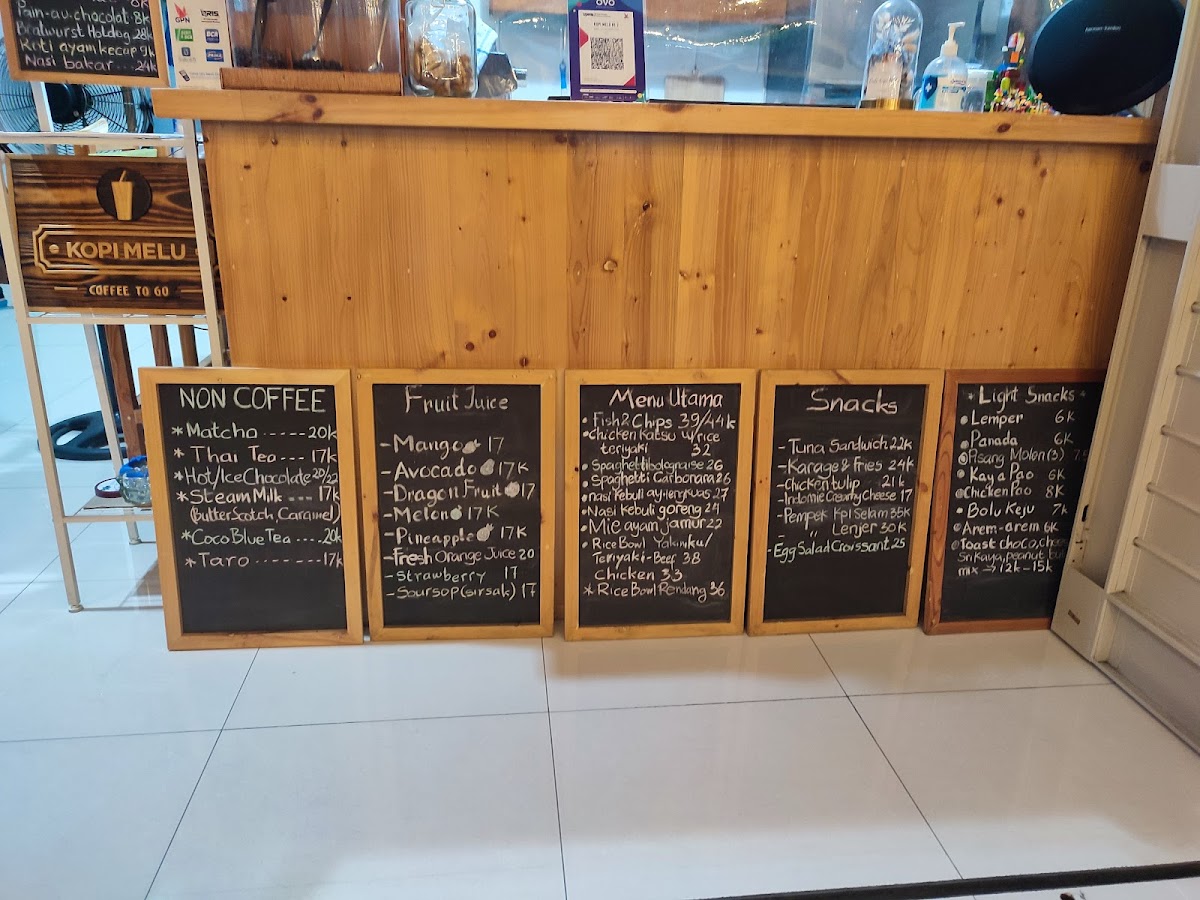 Pain-au-chocolat 28k
Bratwurst Hotdog 28k
Roti ayam kecap 9k
Nasi bakar ... 24k
GPN
QRIS
BCA
OVO
KOPI MELU
COFFEE TO GO
NON COFFEE
*Matcha ------20k
* Thai Tea ---- 17k
*Hot/Ice Chocolate 20/22
*Steam Milk --- 17k
(ButterScotch, Caramel)
*Coco Blue Tea ....20k
*Taro --------17k
Fruit Juice
-Mango 17
-Avocado 17K
-Dragon Fruit 17
-Melon 17K
-Pineapple 17K
-Fresh Orange Juice 20
-Strawberry 17
-Soursop (sirsak) 17
Menu Utama
• Fish2 Chips 39/44k
•Chicken Katsu w/rice
teriyaki 32
• Spaghettibolognaise 26
•Spaghetti Carbonara 26
•nasi Kebuli ay.lengkuas 27
•Nasi Kebuli goreng 24
• Mie ayam jamur 22
• Rice Bowl Yakiniku/
Teriyaki-Beef 38
Chicken 33
* Rice Bowl Rendang 36
Snacks
-Tuna Sandwich 22k
-Karage & Fries 24k
-Chicken tulip 21k
-Indomie Creamy Cheese 17
-Pempek Kpl Selam 35k
- Lenjer 30K
-Egg Salad Croissant 25
*Light Snacks*
• Lemper 6K
• Panada 6K
•Pisang Molen (3)
• Kaya Pao 6K
•Chicken Pao 8K
• Bolu Keju 7k
•Arem-arem 6K
•Toast choco, cheese
Srikaya, peanut,
mix → 12k-15k